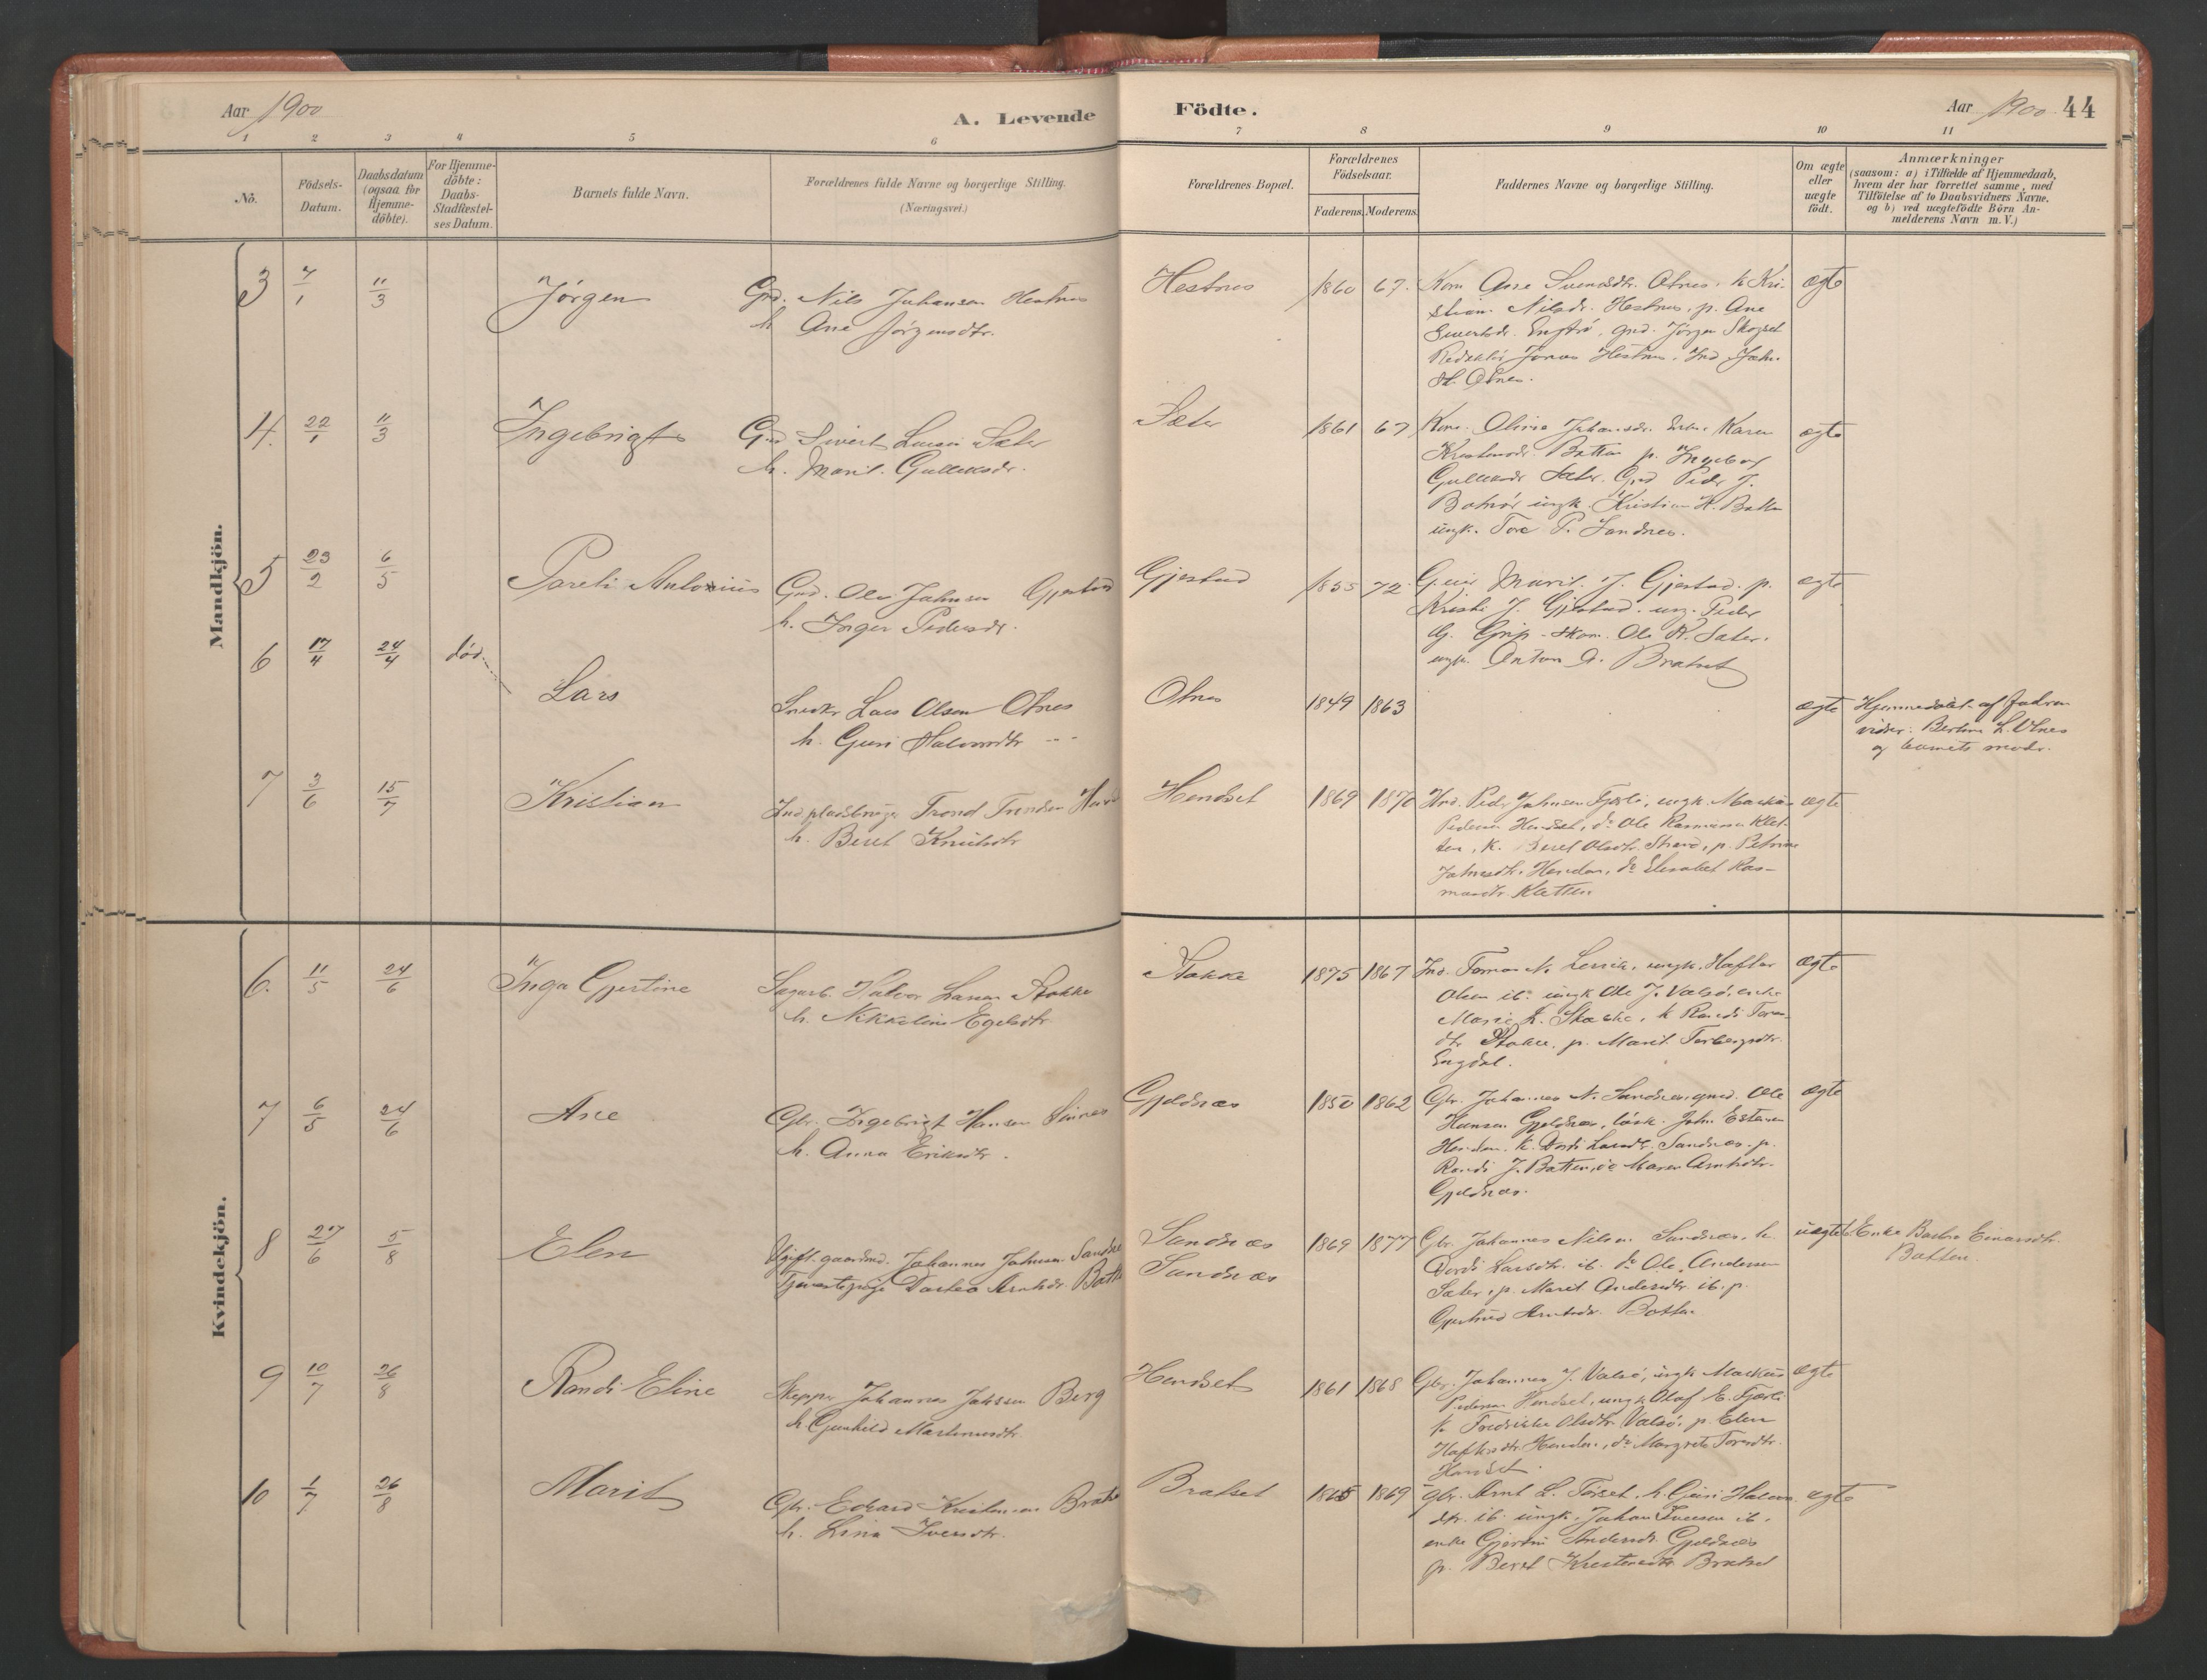 Aar 1900
A. Levende
Födte.
Aar 1900
44
1 2 3 4 5 6 7 8 9 10 11
No.
Födsels-
Datum.
Daabsdatum
(ogsaa for
Hjemme-
döbte).
For Hjemme-
döbte:
Daabs-
Stadfæstel-
ses Datum.
Barnets fulde Navn.
Forældrenes fulde Navne og borgerlige Stilling.
(Næringsvei.)
Forældrenes Bopæl.
Forældrenes
Födselsaar.
Faderens.
Moderens.
Faddernes Navne og borgerlige Stilling.
Om ægte
eller
uægte
födt.
Anmærkninger
(saasom: a) i Tilfælde af Hjemmedaab,
hvem der har forrettet samme, med
Tilföielse af to Daabsvidners Navne.
og b) ved uægtefödte Börn An-
melderens Navn m. V.)
Mandkjön.
3 7/1 11/3 Jørgen
Grd. Nils Johansen Hestnes
h Ane Jørgensdtr.
Hestnes 1860 67.
Kone Ane Svendsdtr. Otnes. k Kri-
stian. Nilsdr. Hestnes, p. Ane
Sivertsdr. Engdrö, grd. Jørgen Skogset
Redaktör Jonas Hestnes. Ind John
H. Otnes.
ægte
4. 22/1 11/3 Ingebrigt
Grd Sivert Larsen Sæter
h. Marit. Gulleksdr.
Sæter 1861 67
Kone. Olivia Johansdr. Karen
Kristensdr. Batten p. Ingebor
Gulleksdr Sæter. Grd Peder J.
Botnör ungk. Kristian H. Botten
ungk. Tore P. Sandnes.
ægte
5 23/2 6/5 Pareli Antonius
Grd. Ole Johnsen Gjestad
h. Inger Pedersdr.
Gjestad 1855 72
Marit. J. Gjestad. p.
Kristi J. Gjestad. ung. Peder
G. Grip - skom. Ole K. Sæter.
ungk. Anton A. Bratset
ægte
6 17/4 24/4 død. Lars
Snedkr Lars Olsen Otnes
h. Guri Halvorsdtr - - -
Otnes 1849 1863
ægte
Hjemmedöbt af faderen
vidner: Berthine L. Otnes
og barnets moder.
7 3/6 15/7 Kristian
Ind pladsbruger Trond Trondsen
h. Beret Knutsdtr
Hendset 1869 1870
Ind. Peder Johnsen Fjærli, ungk. Markus
Pedersen Hendset, do Ole Rasmussen Klet-
ten, k. Beret Olsdtr. Strand, p. Petrine
Johnsdtr. Henden, do Elisabet Ras-
musdtr. Kletten
ægte
Kvindekjön.
6. 11/5 24/6 Inga Gjertine
Sagarb. Halvor Larsen Stokke
h. Nikkoline Egelsdtr
Stokke 1875 1867
Ind. Tomas N. Lervik, ungk. Haftor
Olsen ib. ungk Ole J. Valsö, enke
Marie L. Stokke, k Randi Tores-
dtr Stokke. p. Marit Torbergsdtr.
Engdal.
ægte
7 6/5 24/6 Ane
Gbr. Ingebrigt Hansen
h. Anna Eriksdtr.
Gjeldnæs 1850 1862
Gbr. Johannes N. Sandnes, grd. Ole
Hansen Gjeldnæs, løsk. John Estensen
Henden. k. Dordi Larsdtr. Sandnæs. p.
Randi J. Batten, do Maren Arntsdtr.
Gjeldnæs.
ægte
8 27/6 5/8 Elen
Ugift. gaardmd. Johannes Johnsen
Tjenestepige Dortea Arntsdr.
Sandnæs
Sandnæs
1869 1877
Gbr. Johannes Nilsen Sandnæs, k.
Dordi Larsdtr. ib. do Ole Andersen
Sæter, p. Marit Andersdtr ib. p.
Gjertrud Arntsdr. Botten
uægte
Enke Einarsdtr.
Botten.
9 10/7 26/8 Randi Eline
Skipper Johannes Johnsen Berg
h. Gunhild Martinusdtr.
Hendset 1861 1868
Gbr. Johannes J. Valsö, ungk Markus
Pedersen Hendset, ungk Olaf E. Fjærli
k. Fredrikke Olsdtr. Valsö, p. Elen
Haftorsdtr. Henden, do Margrete Toresdtr.
Handset.
ægte
10 1/7 26/8 Marit
Gbr. Edvard Kristensen
h. Lina Iversdtr.
Bratset 1865 1869
gbr. Arnt L. Töset. h. Guri Halvors-
dtr. ib. ungk. Johan Iversen ib.
enke Gjertru Andersdr. Gjeldnæs
p. Beret Kristensdtr Bratset
ægte